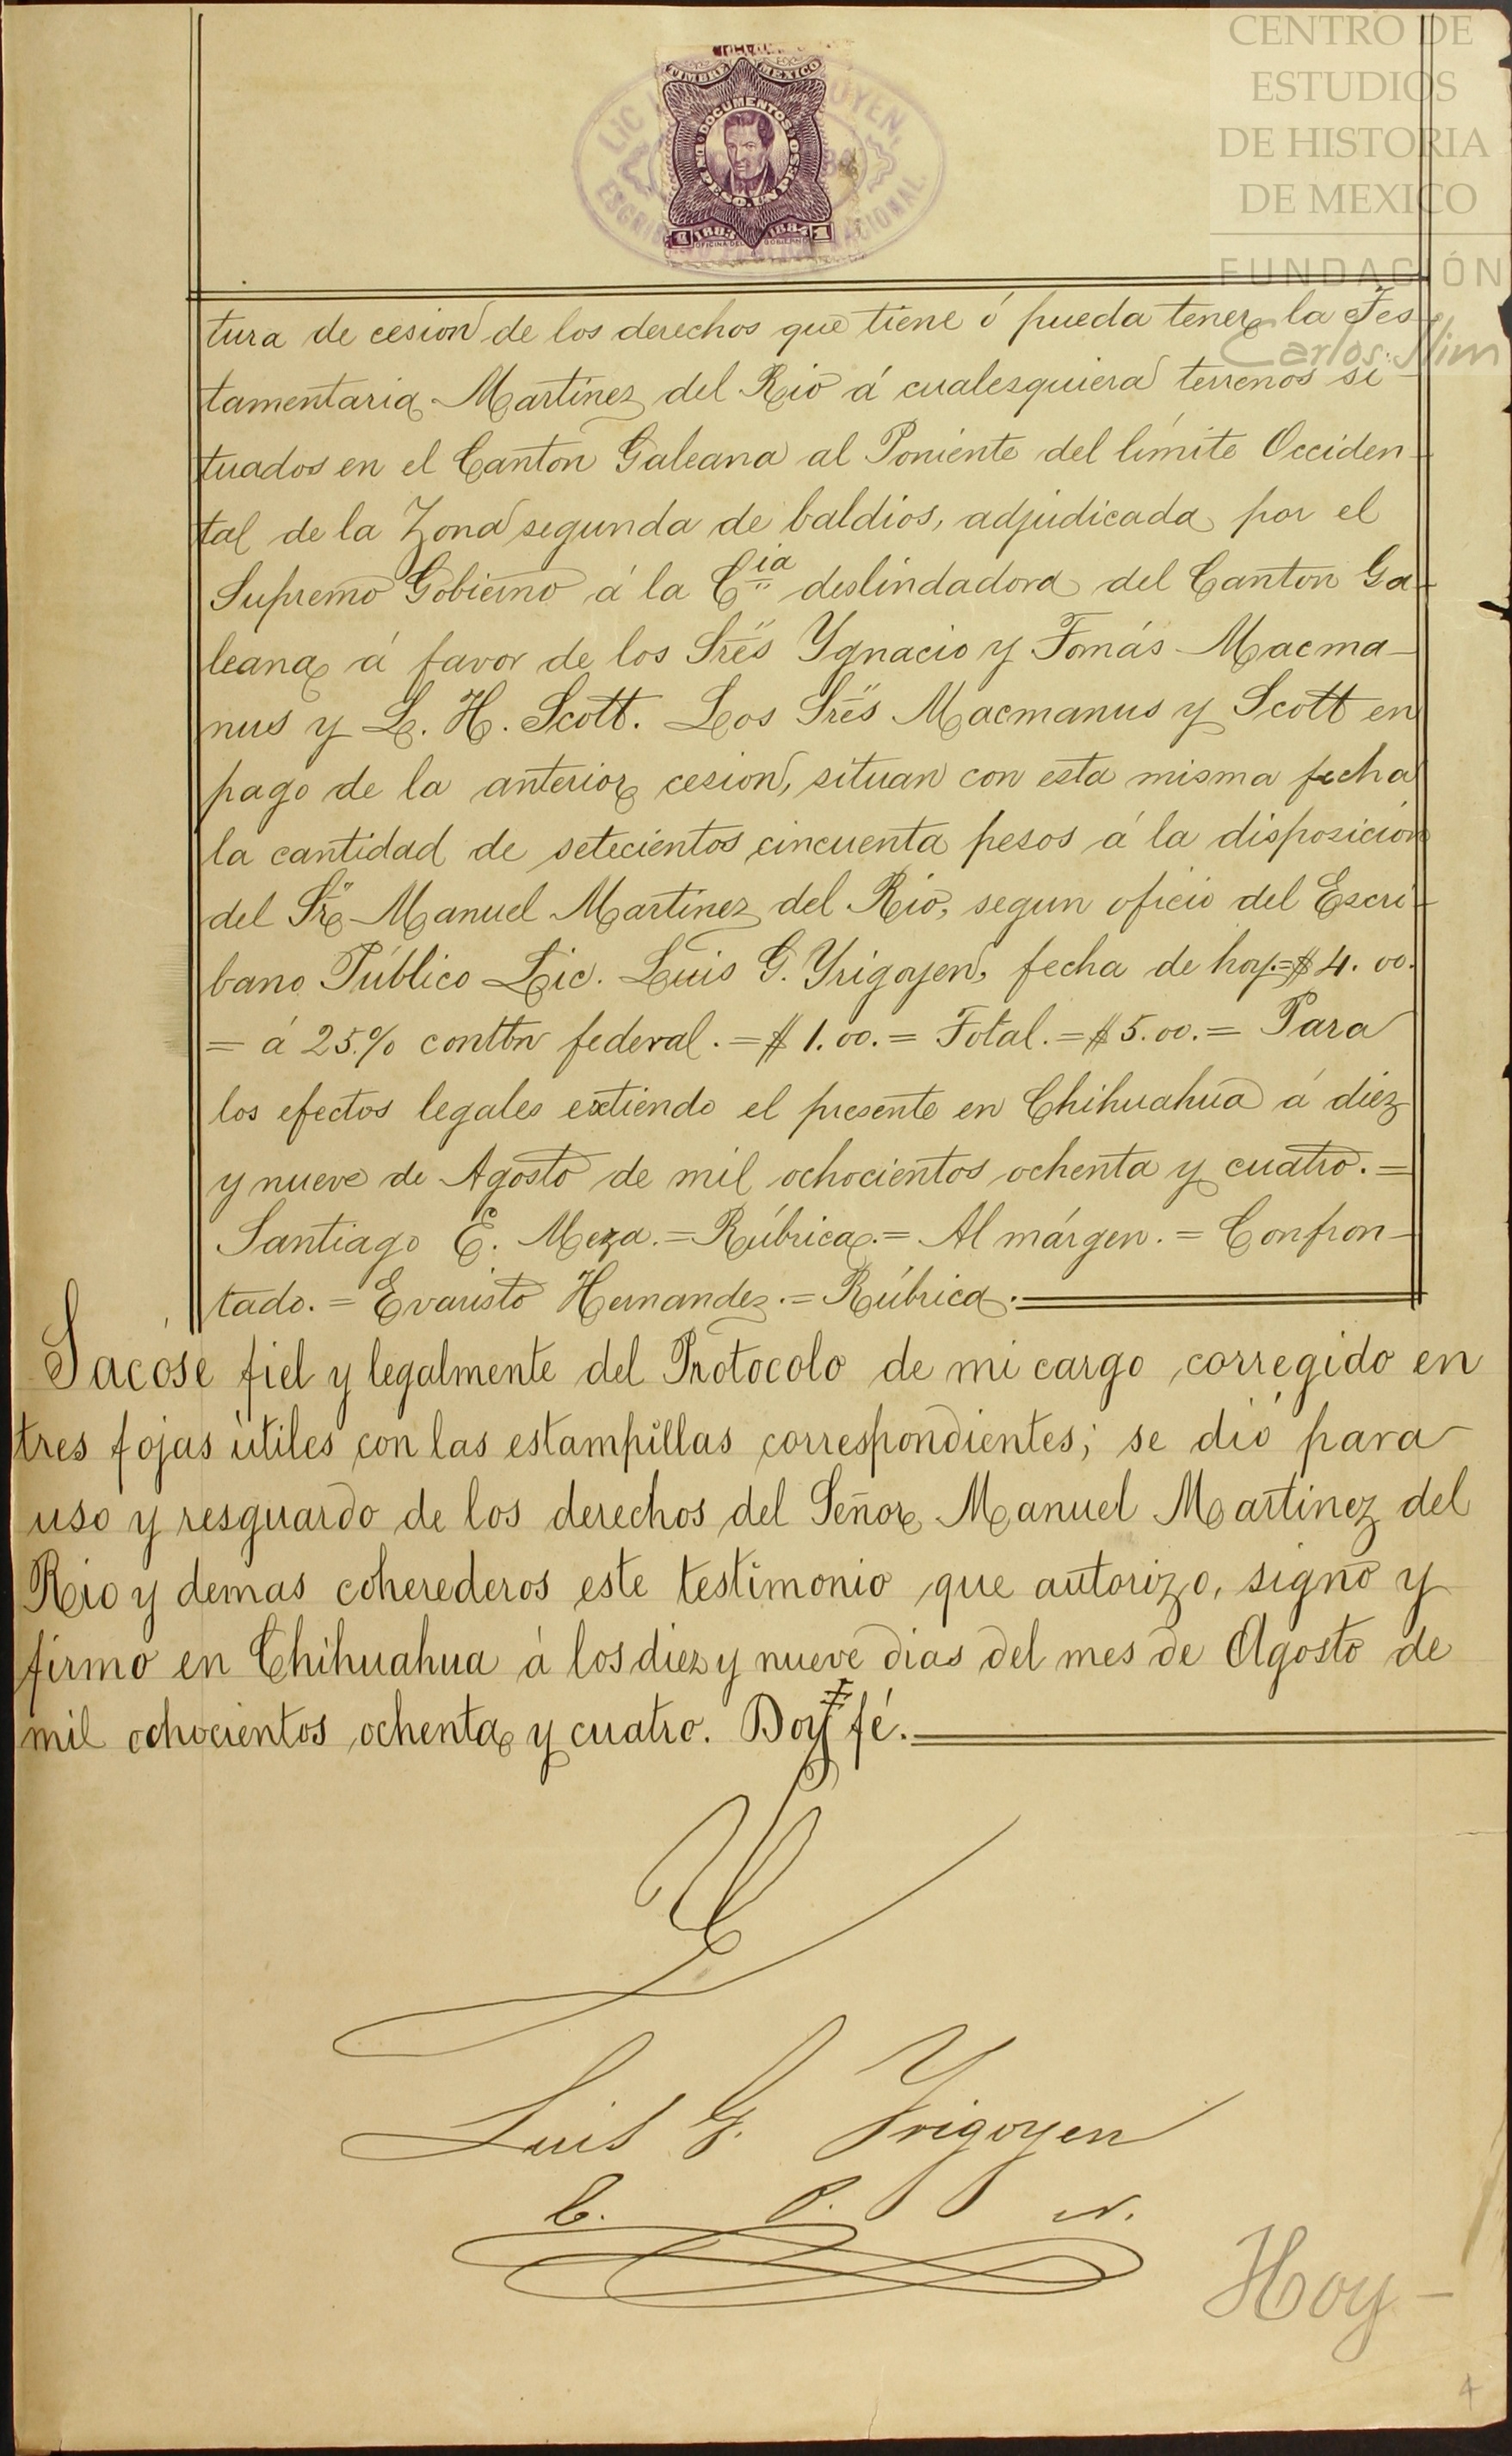 CENTRO DE
ESTUDIOS
DE HISTORIA
DE MEXICO
FUNDACIÓN
Carlos Slim
TIMBRE MEXICO
DOCUMENTOS
UN PESO. UN PESO.
1 1883 1884 1
OFICINA DEL GOBIERNO
LIC
ESCRI
tura de cesion de los derechos que tiene ó pueda tener la Tes-
tamentaria Martinez del Rio á cualesquiera terrenos si-
tuados en el Canton Galeana al Poniente del límite Occiden-
tal de la Zona segunda de baldios, adjudicada por el
Supremo Gobierno á la Cia deslindadora del Canton Ga-
leana á favor de los Sres Ygnacio y Tomás Macma-
nus y L. H. Scott. Los Sres Macmanus y Scott en
pago de la anterior cesion, situan con esta misma fecha
la cantidad de setecientos cincuenta pesos á la disposicion
del Sr Manuel Martinez del Rio, segun oficio del Escri-
bano Público Lic. Luis G. Yrigoyen, fecha de hoy.=$4.00.
= á 25% conttn federal.=$1.00.= Total.=$5.00.= Para
los efectos legales extiendo el presente en Chihuahua á diez
y nueve de Agosto de mil ochocientos ochenta y cuatro.=
Santiago E. Meza.=Rúbrica.= Al márgen.= Confron-
tado.= Evaristo Hernandez.= Rúbrica.
Sacóse fiel y legalmente del Protocolo de mi cargo corregido en
tres fojas útiles con las estampillas correspondientes; se dió para
uso y resguardo de los derechos del Señor Manuel Martinez del
Rio y demas coherederos este testimonio que autorizo, signo y
firmo en Chihuahua á los diez y nueve dias del mes de Agosto de
mil ochocientos ochenta y cuatro. Doy fé.
Luis G. Yrigoyen
P. N.
Hoy-
4